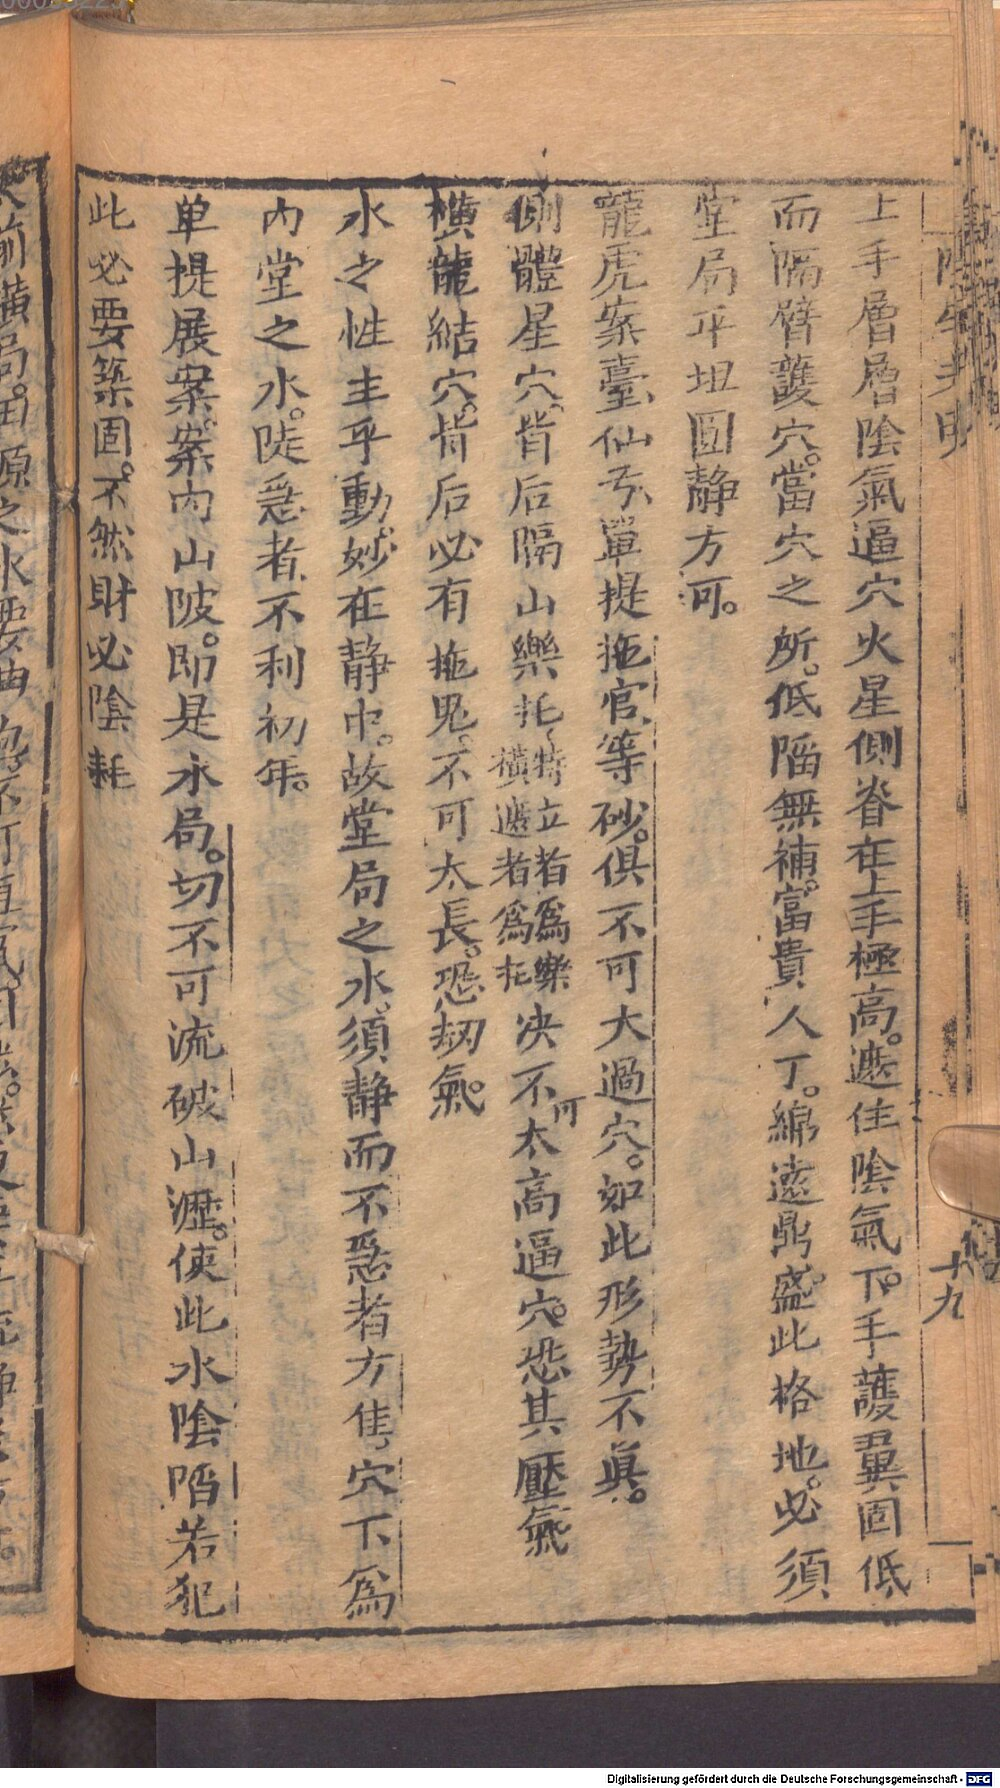 上手層層陰氣逼穴火星側脊在上手極高。遮住陰氣下。手護翼固低
而隔臂護穴。當穴之所。低陷無補。富貴人丁。綿遠鼎盛。此格地。必須
堂局平坦圓静方可。
龍虎案臺仙弓單提拖官等砂。俱不可大過穴。如此形勢不眞。
側體星穴。背后隔山樂托特立者為樂橫遮者為托决不可太高逼穴。恐其壓氣
橫龍結穴。背后必有拖鬼。不可太長。恐刼氣。
水之性主乎動。妙在静中。故堂局之水。須静而不急者方隹。穴下為
内堂之水。陡急者不利初年。
单提展案。案内山陂。即是水局。切不可流破山瀝。使此水陰陷若犯
此必要築固。不然財必陰耗
十九
Digitalisierung gefördert durch die Deutsche Forschungsgemeinschaft - DFG